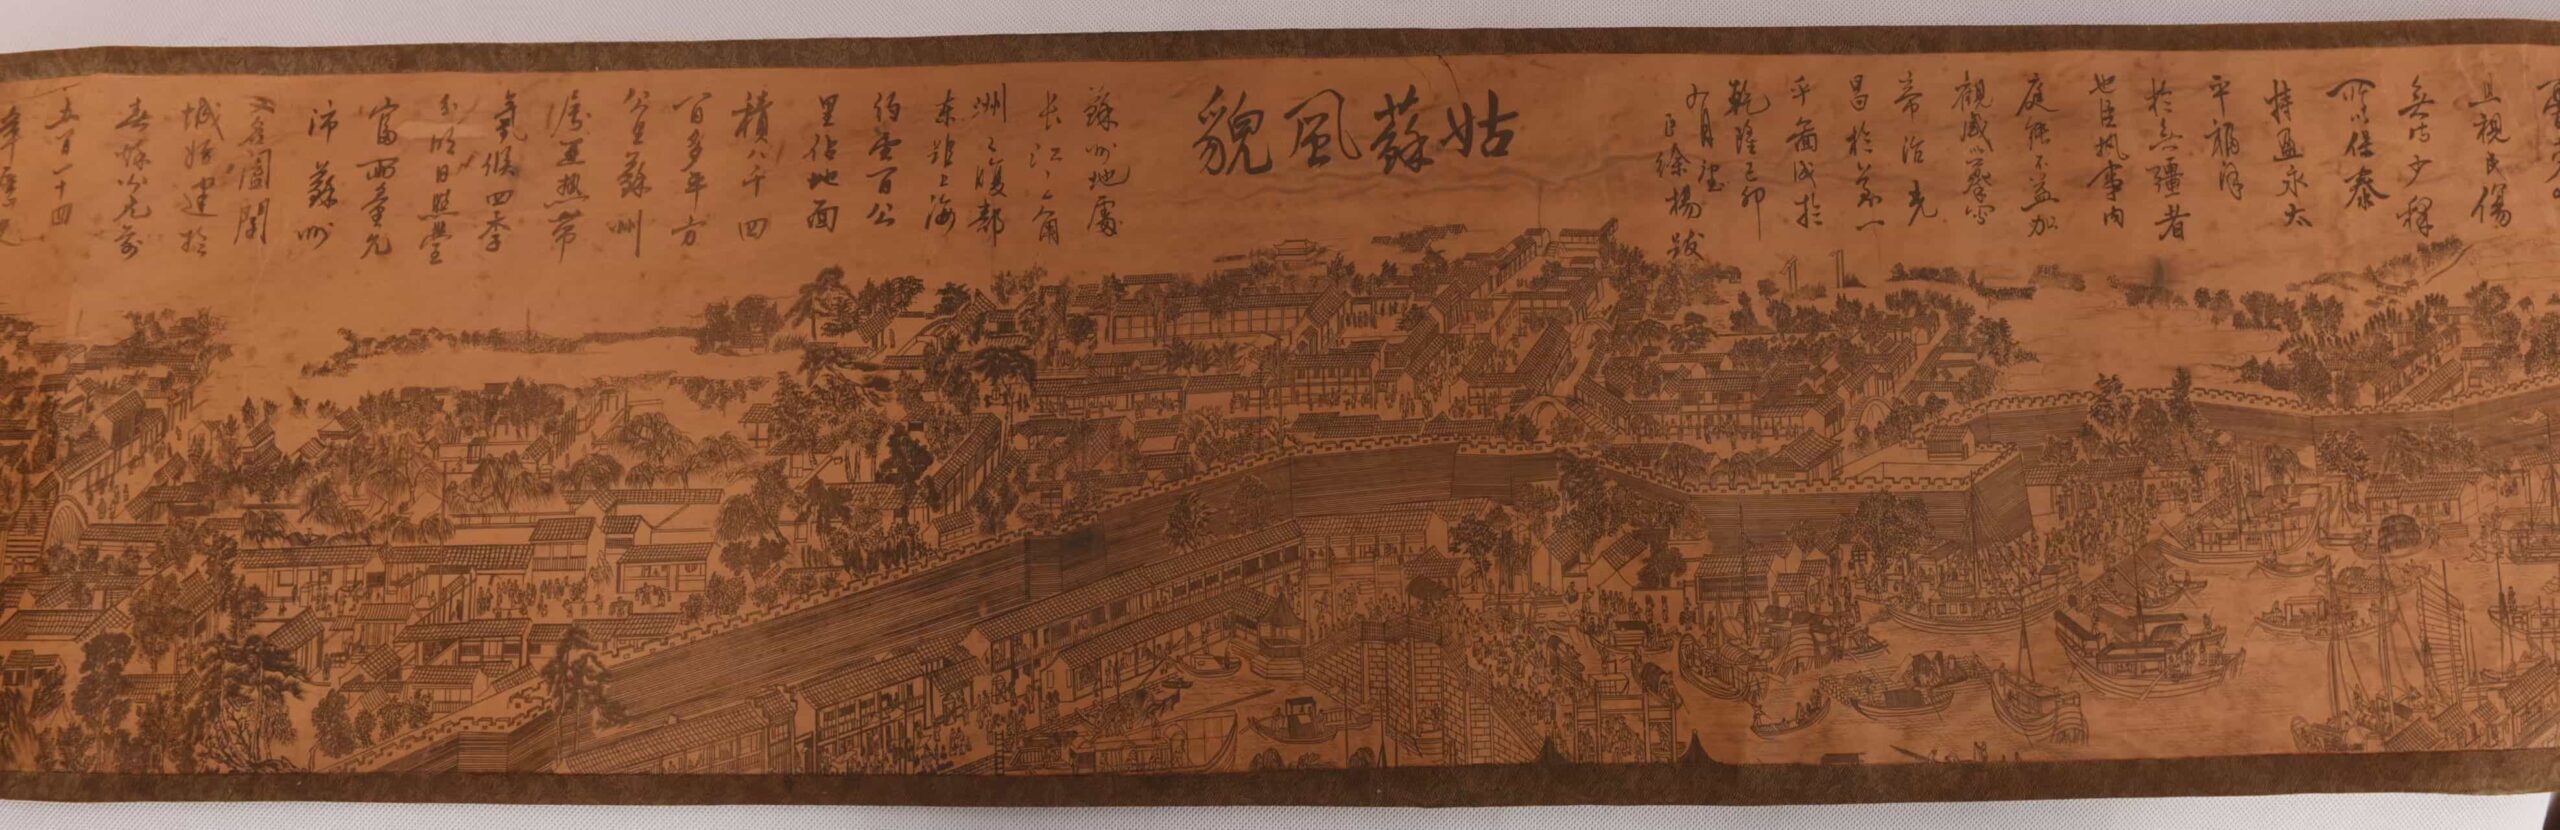 且視民傷
無時少釋
所以保泰
持盈永太
平福澤
於無疆者
也臣執事內
庭能不益加
觀感以摹寫
帝治光
昌於萬一
乎圖成於
乾隆己卯
九月望
臣徐楊跋
姑蘇風貌
蘇州地處
長江三角
洲之腹部
東距上海
約壹百公
里佔地面
積八千四
百多平方
公里蘇州
屬亞热带
氣候四季
分明日照豐
富雨量充
沛蘇州
又名闔閭
城始建於
春秋公元前
五百一十四
年歷史